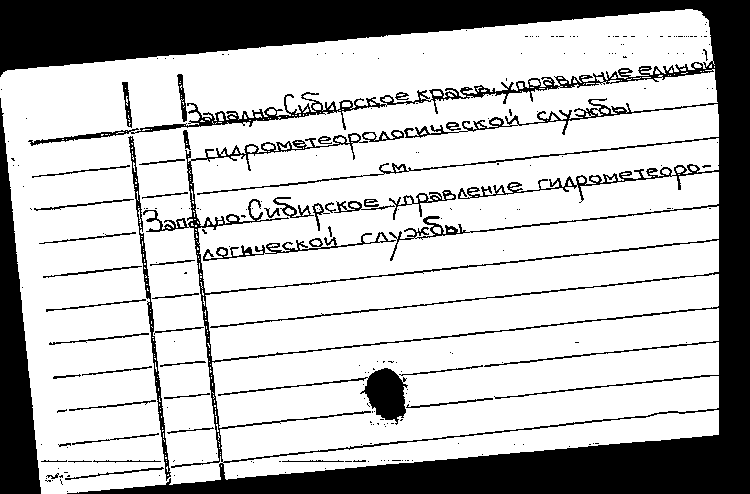 Западно-Сибирское краев. управление единой
гидрометеорологической службы
см.
Западно-Сибирское управление гидрометеоро-
логической службы